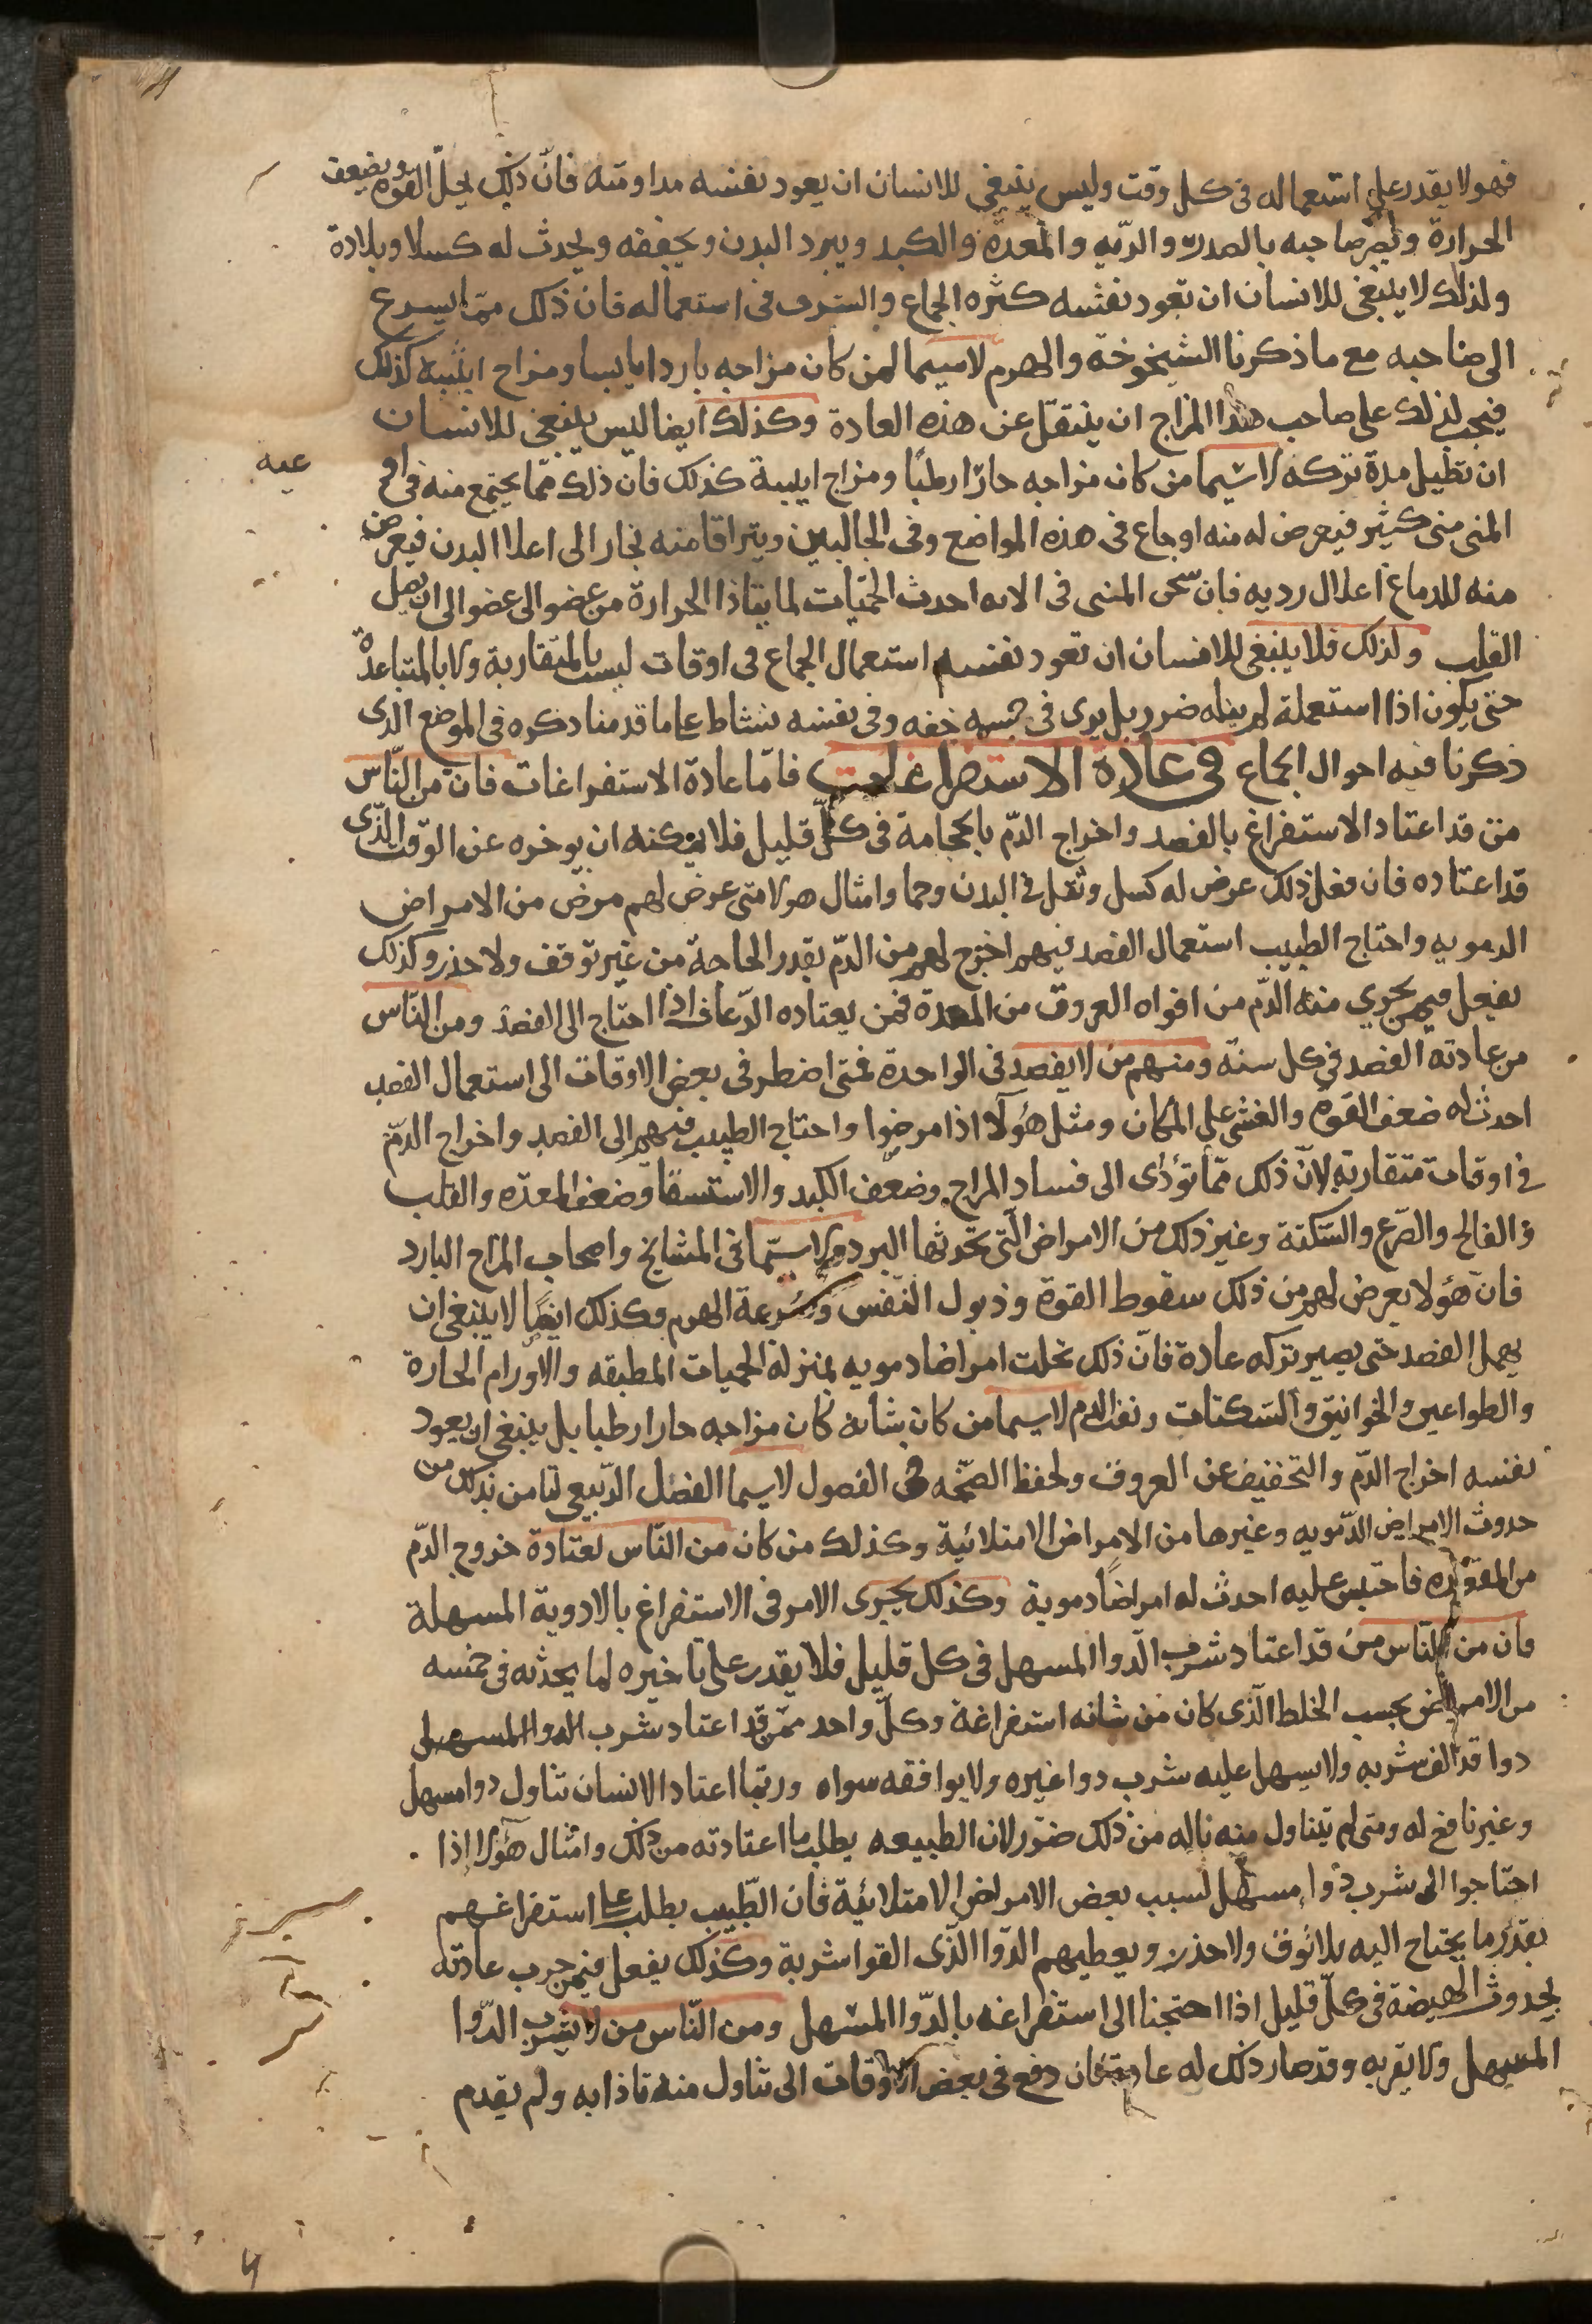 فهو لا يقدر على استعماله فى كل وقت وليس ينبغى للانسان ان يعود نفسه مداومته فان ذلك يحلّ القوه ويضعف
الحرارة ويضر صاحبه بالصدر والريه والمعدة والكبد ويبرد البدن ويجففه ويحدث له كسلا وبلادة
ولذلك لا ينبغى للانسان ان تعود نفسه كثره الجماع والسرف فى استعماله فان ذلك مما يسرع
الى صاحبه مع ما ذكرنا الشيخوخة والهرم لاسيما لمن كان مزاجه باردا يابسا ومزاج انثييه كذلك
فيجب لذلك على صاحب هذا المزاج ان ينتقل عن هذه العادة وكذلك ايضا ليس ينبغى للانسان
ان تطيل مدة تركه لاسيما من كان مزاجه حارّا رطبًا ومزاج انثييه كذلك فان ذلك ممّا يجتمع منه فى او
عيه
المنى منى كثير فيعرض له منه اوجاع فى هذه المواضع وفى الحالبين ويتراقا منه بخار الى اعلا البدن فيعرض
منه للدماغ اعلال رديه فان سخن المنى فى الاته احدث الحمّيات لما يتاذا الحرارة من عضو الى عضو الى ان يصل
القلب ولذلك فلا ينبغى للانسان ان تعود نفسه استعمال الجماع فى اوقات ليست بالمتقاربة ولا بالمتباعدة
حتى يكون اذا استعمله لم يناله ضرر بل يرى فى جسمه خفه وفى نفسه نشاط على ما قدمنا ذكره فى الموضع الذى
ذكرنا فيه احوال الجماع فى عادة الاستفراغات فامّا عادة الاستفراغات فان من النّاس
من قد اعتاد الاستفراغ بالفصد واخراج الدّم بالحجامة فى كلّ قليل فلا يمكنه ان يوخره عن الوقت الّذى
قد اعتاده فان فعل ذلك عرض له كسل وثقل فى البدن وحما وامثال هولا متى عرض لهم مرض من الامراض
الدمويه واحتاج الطبيب استعمال الفصد فيهم اخرج لهم من الدّم بقدر الحاجة من غير توقف ولا حذر وكذلك
يفعل فيمن يجرى منه الدّم من افواه العروق من المعدة فمن يعتاده الرّعاف اذا احتاج الى الفصد ومن النّاس
من عادته الفصد فى كل سنة ومنهم من لا يفصد فى الواحدة فمتى اضطر فى بعض الاوقات الى استعمال الفصد
احدث له ضعف القوه والغشى على المكان ومثل هؤلا اذا مرضوا واحتاج الطبيب فيهم الى الفصد واخراج الدّم
فى اوقات متقاربة لانّ ذلك ممّا تؤدّى الى فساد المزاج وضعف الكبد والاستسقا وضعف المعدّه والقلب
والفالج والصّرع والسّكتة وغير ذلك من الامراض الّتى تحدثها البرد ولاسيّما فى المشايخ واصحاب المزاج البارد
فانّ هؤلا يعرض لهم من ذلك سقوط القوة وذبول النّفس وسرعة الهرم وكذلك ايضًا لا ينبغى ان
يهمل الفصد حتى يصير تركه عادة فانّ ذلك تجلب امراضا دمويه بمنزلة الحميات المطبقه والاورام الحارة
والطواعين والخوانيق والسّكتات ونفث الدم لاسيما من كان شابه كان مزاجه حارا رطبا بل ينبغى ان يعود
نفسه اخراج الدّم والتخفيف عن العروق ولحفظ الصّحّه فى الفصول لاسيما الفصل الرّبيعى لتامن بذلك من
حدوث الامراض الدّمويه وغيرها من الامراض الامتلائية وكذلك من كان من النّاس لعتادة خروج الدّم
من المقعده فاحتبس عليه احدث له امراضًا دموية وكذلك يجرى الامر فى الاستفراغ بالادوية المسهلة
فان من النّاس من قد اعتاد شرب الّدوا المسهل فى كل قليل فلا يقدر على تاخيره لما يحدثه فى جسمه
من الامراض بحسب الخلط الّذى كان من شانه استفراغه وكلّ واحد ممّن قد اعتاد شرب الدوا المسهل
دوا قد الف شربه ولا يسهل عليه شرب دوا غيره ولا يوافقه سواه وربّما اعتاد الانسان تناول دوا مسهل
وغير نافع له ومتى لم يتناول منه ناله من ذلك ضرّر لان الطبيعه يطلب ما اعتادته من ذلك وامثال هؤلا اذا
احتاجوا الى شرب دوا مسهل لسبب بعض الامراض الامتلائيّة فان الطّبيب يطلب على استفراغهم
بقدر ما يحتاج اليه بلا توقف ولا حذر ويعطيهم الدّوا الّذى القوا شربة وكذلك يفعل فيمن جرت عادته
بحدوث الهيضة فى كلّ قليل اذا احتجنا الى استفراغه بالدّوا المسهل ومن النّاس من لا يشرب الدّوا
المسهل ولا يقربه وقد صار ذلك له عادة فان دفع فى بعض الاوقات الى تناول منه تاذا به ولم يقدم